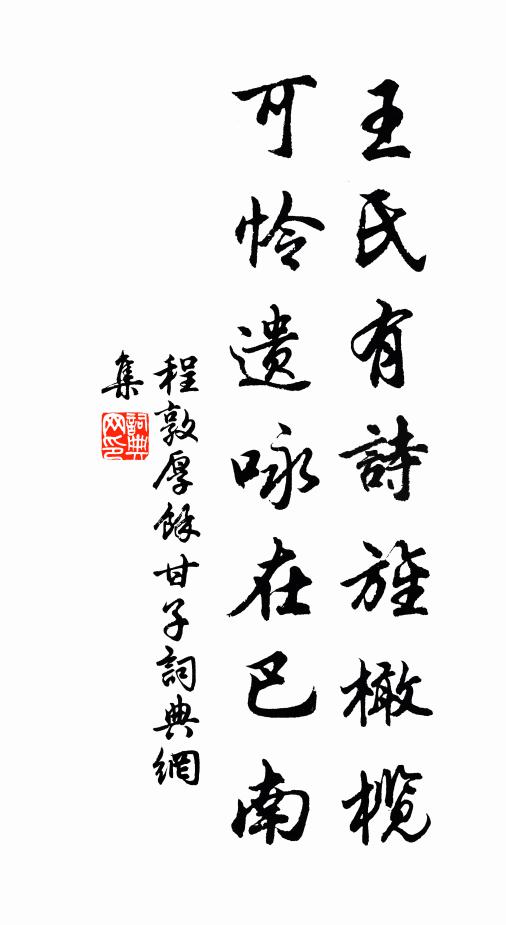 王氏有詩旌橄欖
可怜遺咏在巴南
程敦厚餘甘子詞典網
集
詞典
网印